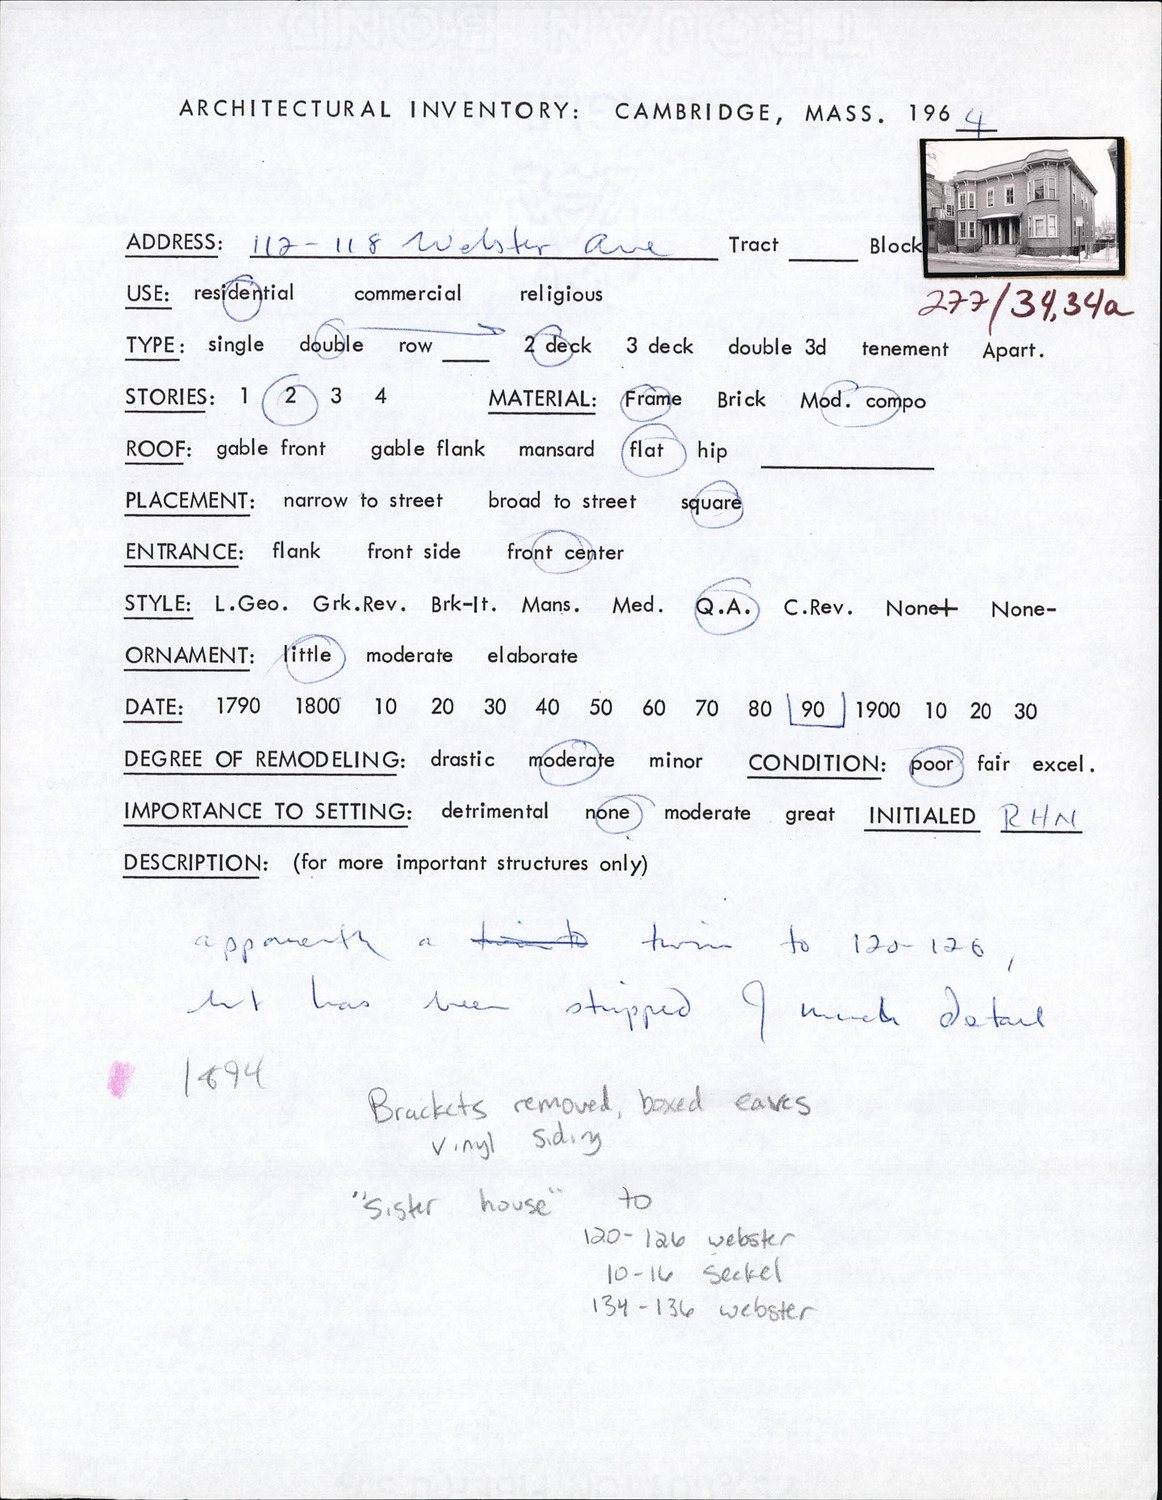 ARCHITECTURAL INVENTORY: CAMBRIDGE, MASS. 1964
ADDRESS: 112-118 Webster Ave Tract ____ Block
277/34,34a
USE: residential commercial religious
TYPE: single double row ____ 2 deck 3 deck double 3d tenement Apart.
STORIES: 1 2 3 4 MATERIAL: Frame Brick Mod. compo
ROOF: gable front gable flank mansard flat hip ____
PLACEMENT: narrow to street broad to street square
ENTRANCE: flank front side front center
STYLE: L.Geo. Grk.Rev. Brk-It. Mans. Med. Q.A. C.Rev. None+ None-
ORNAMENT: little moderate elaborate
DATE: 1790 1800 10 20 30 40 50 60 70 80 90 1900 10 20 30
DEGREE OF REMODELING: drastic moderate minor CONDITION: poor fair excel.
IMPORTANCE TO SETTING: detrimental none moderate great INITIALED RHN
DESCRIPTION: (for more important structures only)
apparently a twin to 120-126,
but has been stripped of much detail
1894
Brackets removed, boxed eaves
vinyl siding
"Sister house" to
120-126 webster
10-16 Seckel
134-136 webster